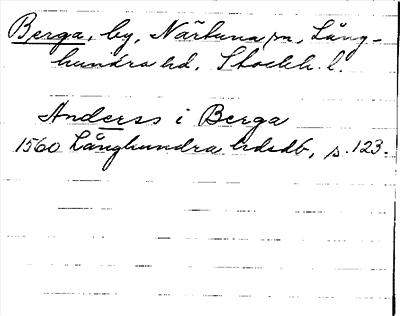 Berga, by, Närtuna sn, Lång-
hundra hd, Stockh. l.
Anderss i Berga
1560 Långhundra hdsdb, s. 123.